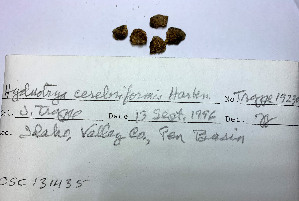 Hydnotrya cerebriformis Harkn. No Trappe
J. Trappe Date 13 Sept, 1996 Det.
Idaho, Valley Co, Pen Basin
OSC 131435